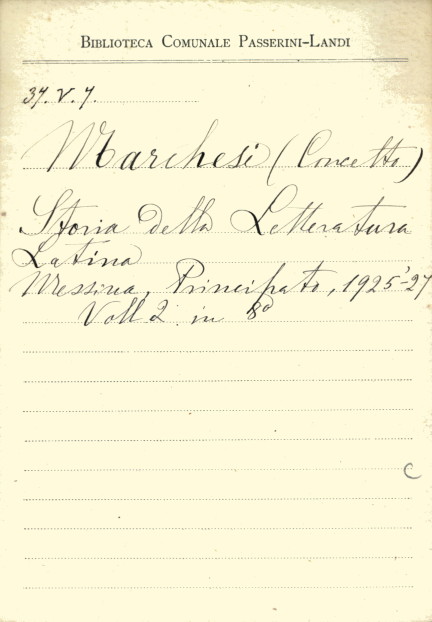 BIBLIOTECA COMUNALE PASSERINI-LANDI
37. V. 7.
Marchesi (Concetto)
Storia della Letteratura
Latina
Messina, Principato, 1925-27
Voll 2 in 8º
C